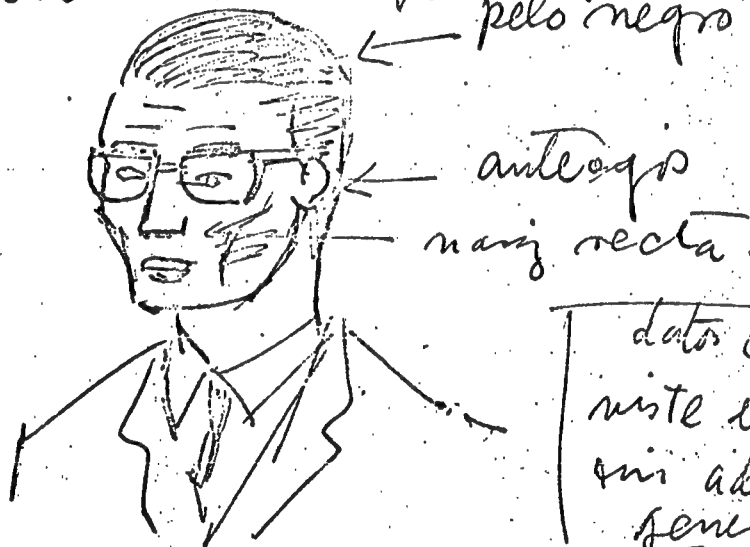 pelo negro
anteojos
nariz recta
datos
viste
sin